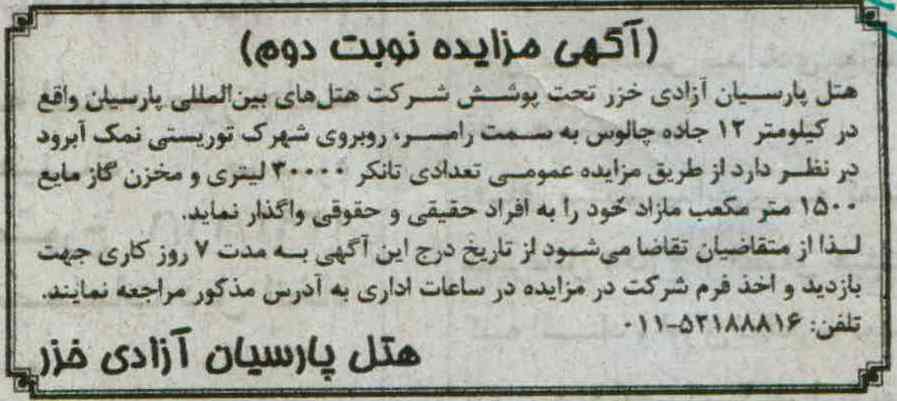 (آگهی مزایده نوبت دوم)
هتل پارسیان آزادی خزر تحت پوشش شرکت هتل‌های بین‌المللی پارسیان واقع
در کیلومتر ۱۲ جاده چالوس به سمت رامسر، روبروی شهرک توریستی نمک آبرود
در نظر دارد از طریق مزایده عمومی تعدادی تانکر ۳۰۰۰۰ لیتری و مخزن گاز مایع
۱۵۰۰ متر مکعب مازاد خود را به افراد حقیقی و حقوقی واگذار نماید.
لذا از متقاضیان تقاضا می‌شود از تاریخ درج این آگهی به مدت ۷ روز کاری جهت
بازدید و اخذ فرم شرکت در مزایده در ساعات اداری به آدرس مذکور مراجعه نمایند.
تلفن: ۵۲۱۸۸۸۱۶-۰۱۱
هتل پارسیان آزادی خزر